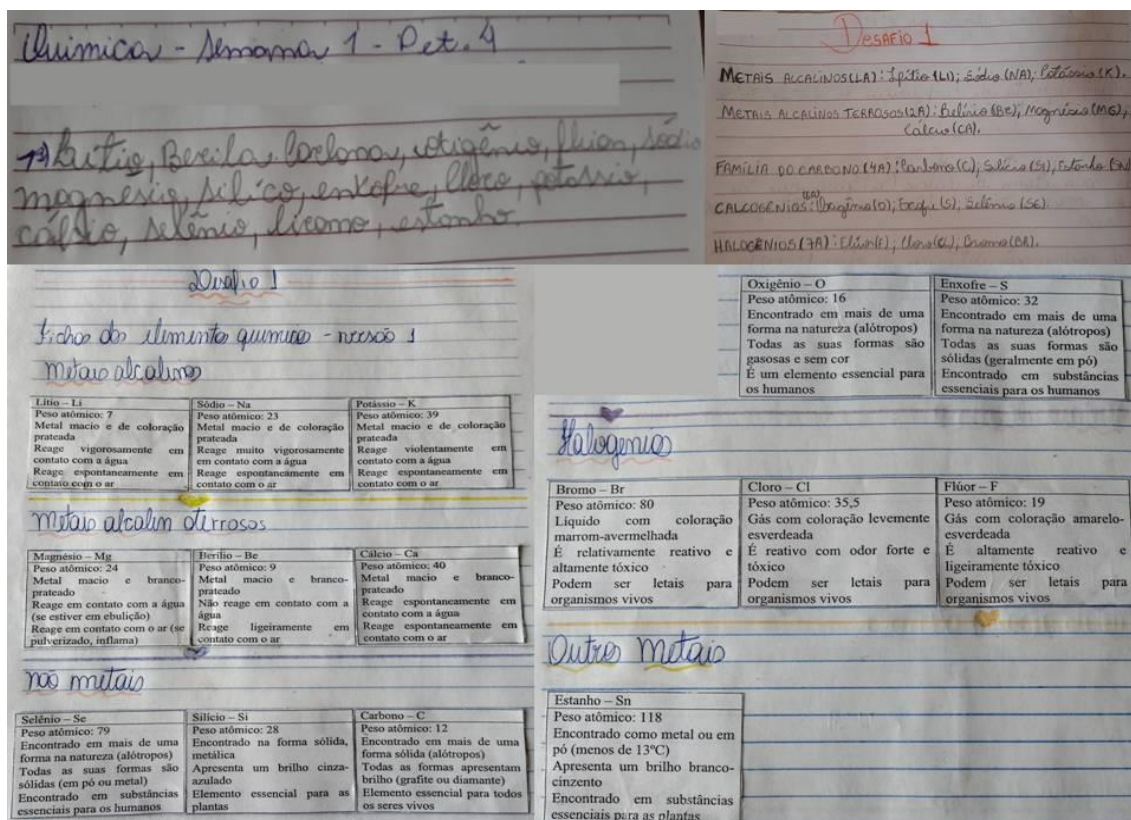 Química - Semana 1 - Pet. 4
1ª) Lítio, Berílo, Carbono, oxigênio, flúor, sódio
magnésio, silíco, enxofre, cloro, potássio,
cálcio, selênio, bromo, estanho.
Desafio 1
METAIS ALCALINOS (1A): Lítio (LI); Sódio (NA); Potássio (K).
METAIS ALCALINOS TERROSOS (2A): Berílio (BE); Magnésio (MG);
Cálcio (CA).
FAMÍLIA DO CARBONO (4A): Carbono (C); Silício (SI); Estanho (SN)
CALCOGÊNIOS (6A): Oxigênio (O); Enxofre (S); Selênio (SE).
HALOGÊNIOS (7A): Flúor (F); Cloro (CL); Bromo (BR).
Desafio 1
Fichas dos elemento quimicos - versão 1
Metais alcalinos
Lítio – Li
Peso atômico: 7
Metal macio e de coloração
prateada
Reage vigorosamente em
contato com a água
Reage espontaneamente em
contato com o ar
Sódio – Na
Peso atômico: 23
Metal macio e de coloração
prateada
Reage muito vigorosamente
em contato com a água
Reage espontaneamente em
contato com o ar
Potássio – K
Peso atômico: 39
Metal macio e de coloração
prateada
Reage violentamente em
contato com a água
Reage espontaneamente em
contato com o ar
Metais alcalin oterrosos
Magnésio – Mg
Peso atômico: 24
Metal macio e branco-
prateado
Reage em contato com a água
(se estiver em ebulição)
Reage em contato com o ar (se
pulverizado, inflama)
Berílio – Be
Peso atômico: 9
Metal macio e branco-
prateado
Não reage em contato com a
água
Reage ligeiramente em
contato com o ar
Cálcio – Ca
Peso atômico: 40
Metal macio e branco-
prateado
Reage espontaneamente em
contato com a água
Reage espontaneamente em
contato com o ar
não metais
Selênio – Se
Peso atômico: 79
Encontrado em mais de uma
forma na natureza (alótropos)
Todas as suas formas são
sólidas (em pó ou metal)
Encontrado em substâncias
essenciais para os humanos
Silício – Si
Peso atômico: 28
Encontrado na forma sólida,
metálica
Apresenta um brilho cinza-
azulado
Elemento essencial para as
plantas
Carbono – C
Peso atômico: 12
Encontrado em mais de uma
forma sólida (alótropos)
Todas as formas apresentam
brilho (grafite ou diamante)
Elemento essencial para todos
os seres vivos
Oxigênio – O
Peso atômico: 16
Encontrado em mais de uma
forma na natureza (alótropos)
Todas as suas formas são
gasosas e sem cor
É um elemento essencial para
os humanos
Enxofre – S
Peso atômico: 32
Encontrado em mais de uma
forma na natureza (alótropos)
Todas as suas formas são
sólidas (geralmente em pó)
Encontrado em substâncias
essenciais para os humanos
Halogenios
Bromo – Br
Peso atômico: 80
Líquido com coloração
marrom-avermelhada
É relativamente reativo e
altamente tóxico
Podem ser letais para
organismos vivos
Cloro – Cl
Peso atômico: 35,5
Gás com coloração levemente
esverdeada
É reativo com odor forte e
tóxico
Podem ser letais para
organismos vivos
Flúor – F
Peso atômico: 19
Gás com coloração amarelo-
esverdeada
É altamente reativo e
ligeiramente tóxico
Podem ser letais para
organismos vivos
Outros Metais
Estanho – Sn
Peso atômico: 118
Encontrado como metal ou em
pó (menos de 13ºC)
Apresenta um brilho branco-
cinzento
Encontrado em substâncias
essenciais para as plantas